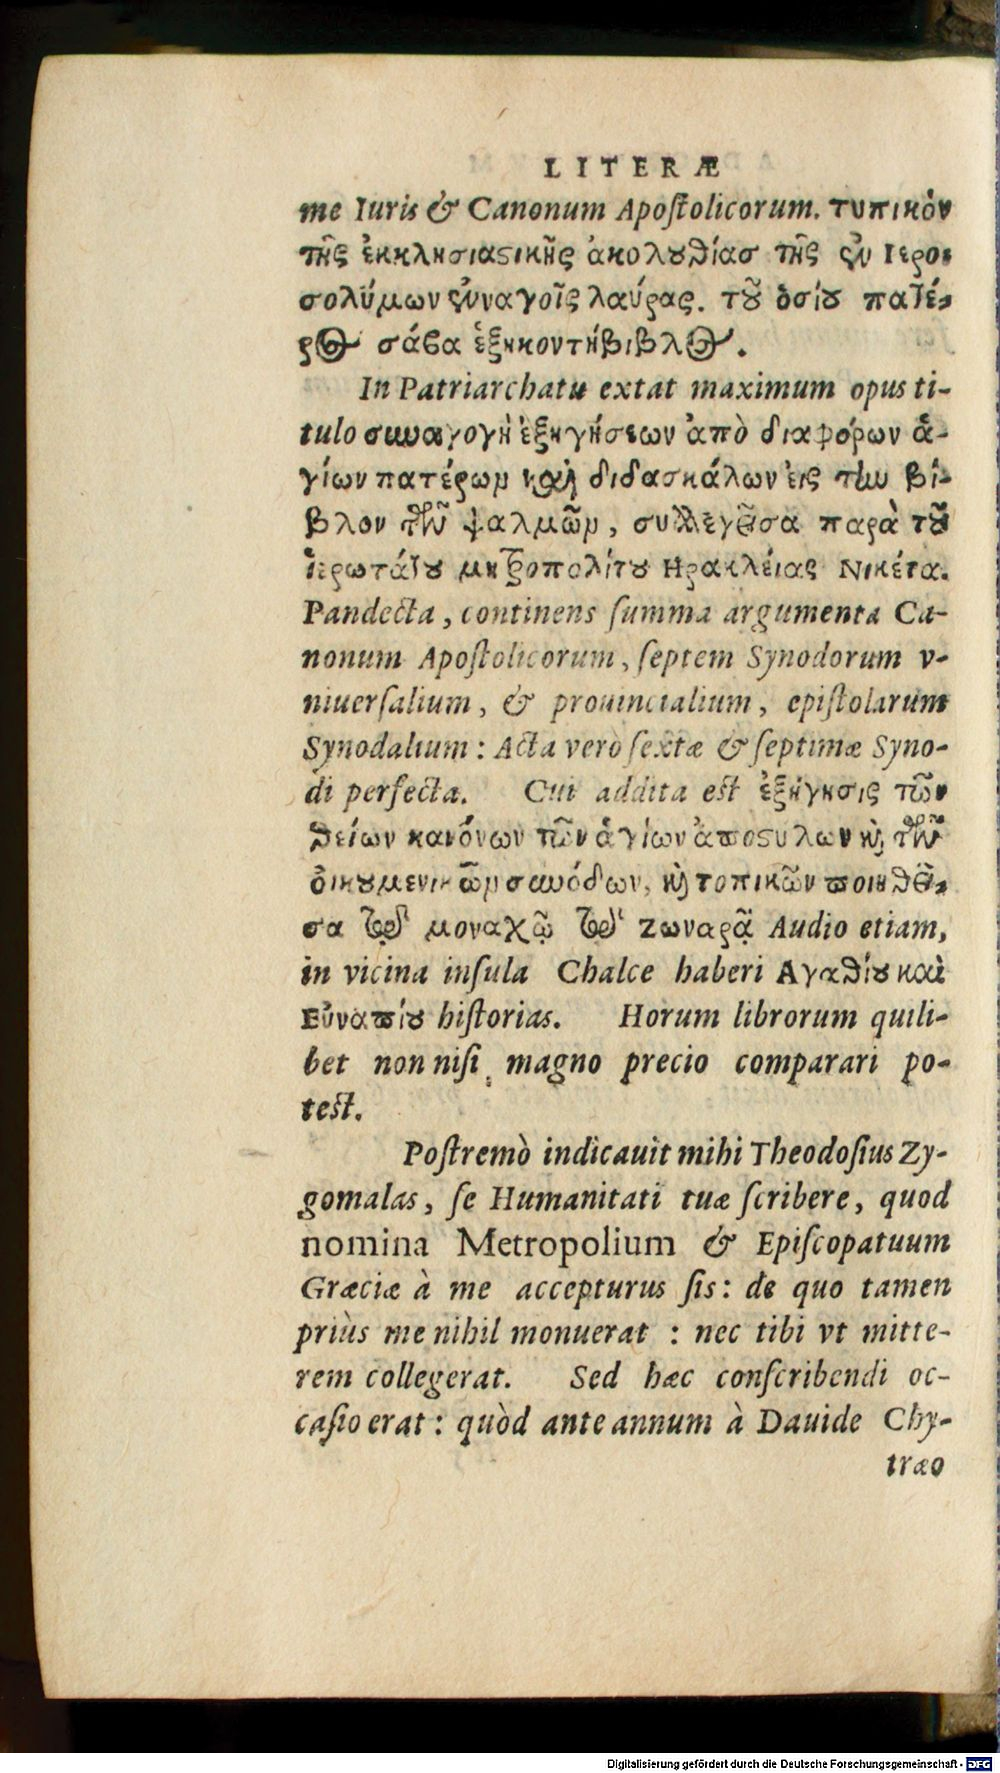 LITERÆ
me Iuris & Canonum Apoſtolicorum. τυπικὸν
τῆς ἐκκλησιαϛικῆς ἀκολȣθίασ τῆς ἐν Ιερο-
σολύμων ἐυναγοῖς λαύρας. τȣ͂ ὁσίȣ πατέ-
ρος σάβα ἑξηκοντήβιβλος.
In Patriarchatu extat maximum opus ti-
tulo συναγογὴ ἐξηγήσεων ἀπὸ διαφόρων ἁ-
γίων πατέρων καὶ διδασκάλων ἐις τὴν βί-
βλον τῶν ψαλμῶν, συλλεγεῖσα παρὰ τȣ͂
ἱερωτάτȣ μητροπολίτȣ Ηρακλέιας Νικέτα.
Pandecta, continens ſumma argumenta Ca-
nonum Apoſtolicorum, ſeptem Synodorum v-
niuerſalium, & prouincialium, epiſtolarum
Synodalium: Acta verò ſextæ & ſeptimæ Syno-
di perfecta. Cui addita eſt ἐξήγησις τῶν
θείων κανόνων τῶν ἁγίων ἀποϛυλων κὶ τῶν
ὀικȣμενικῶν συνόδων, κὶ τοπικῶν ποιηθεῖ-
σα τῷ μοναχῷ τῷ Ζωναρᾷ Audio etiam,
in vicina inſula Chalce haberi Αγαθίȣ καὶ
Εὐναπίȣ hiſtorias. Horum librorum quili-
bet non niſi magno precio comparari po-
teſt.
Poſtremò indicauit mihi Theodoſius Zy-
gomalas, ſe Humanitati tuæ ſcribere, quod
nomina Metropolium & Epiſcopatuum
Græciæ à me accepturus ſis: de quo tamen
priùs me nihil monuerat : nec tibi vt mitte-
rem collegerat. Sed hæc conſcribendi oc-
caſio erat: quòd ante annum à Dauide Chy-
træo
Digitalisierung gefördert durch die Deutsche Forschungsgemeinschaft - DFG